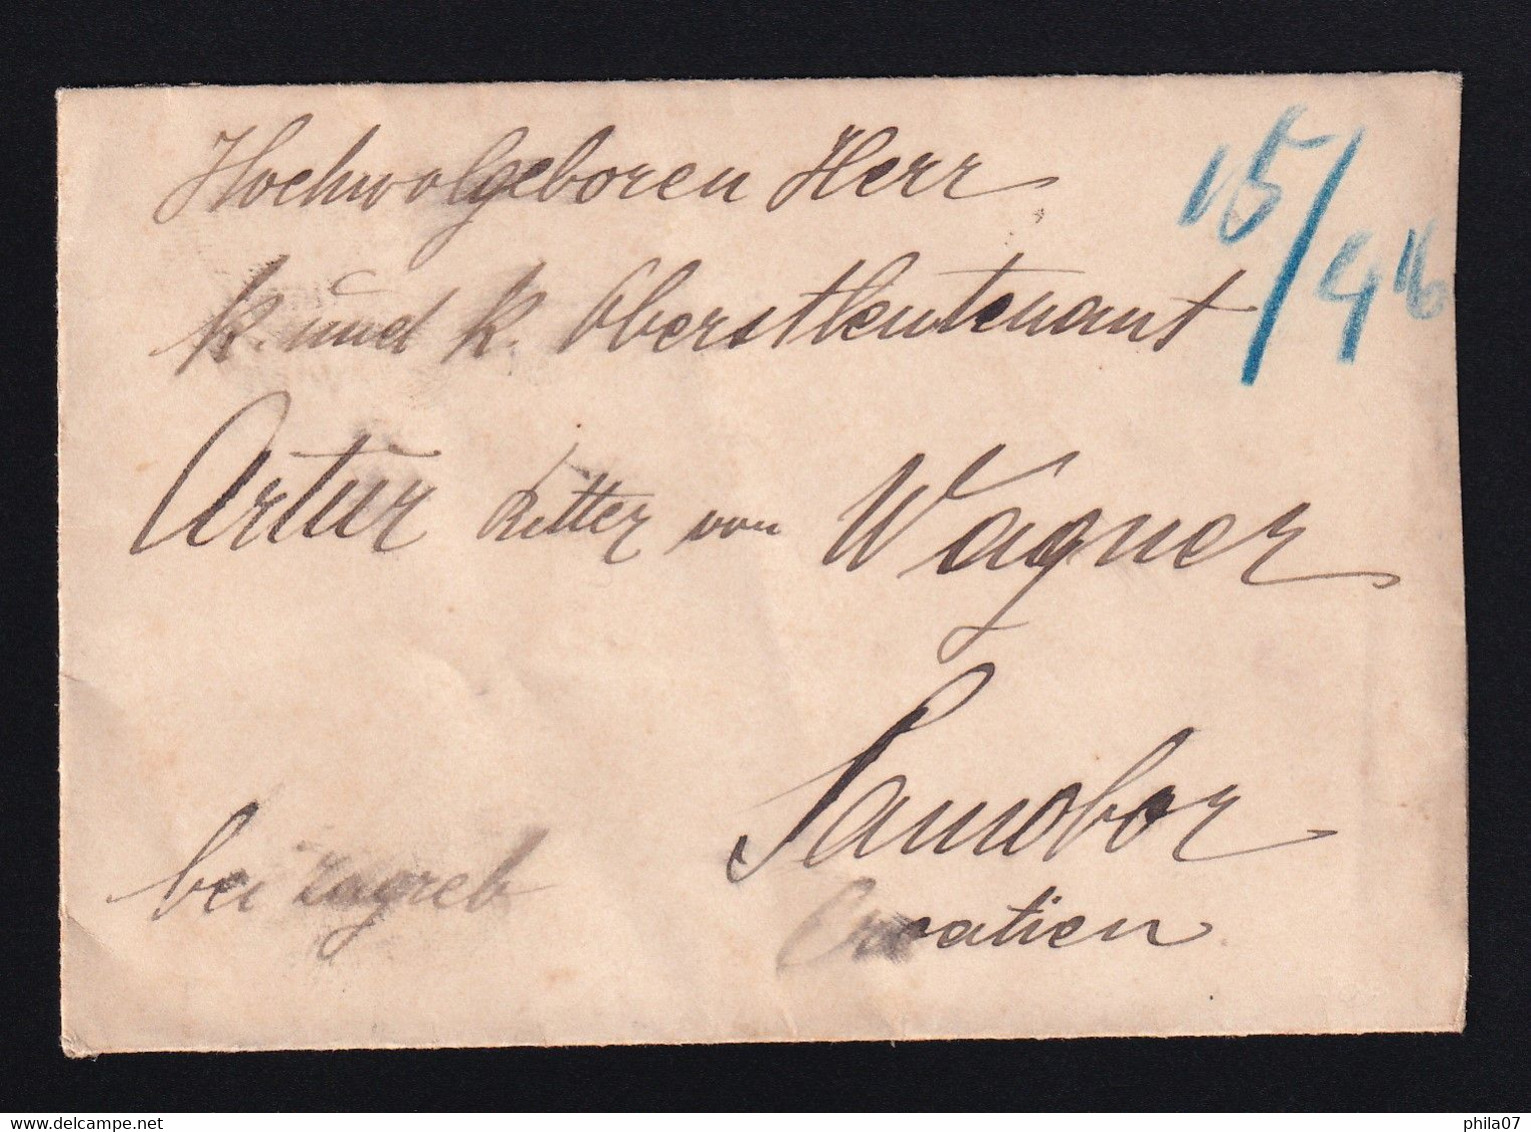 Hochwolgeboren Herr
k. und k. Oberstleutenant
15/9 16
Artur Ritter von Wagner
Samobor
bei Zagreb
Croatien
www.delcampe.net
phila07